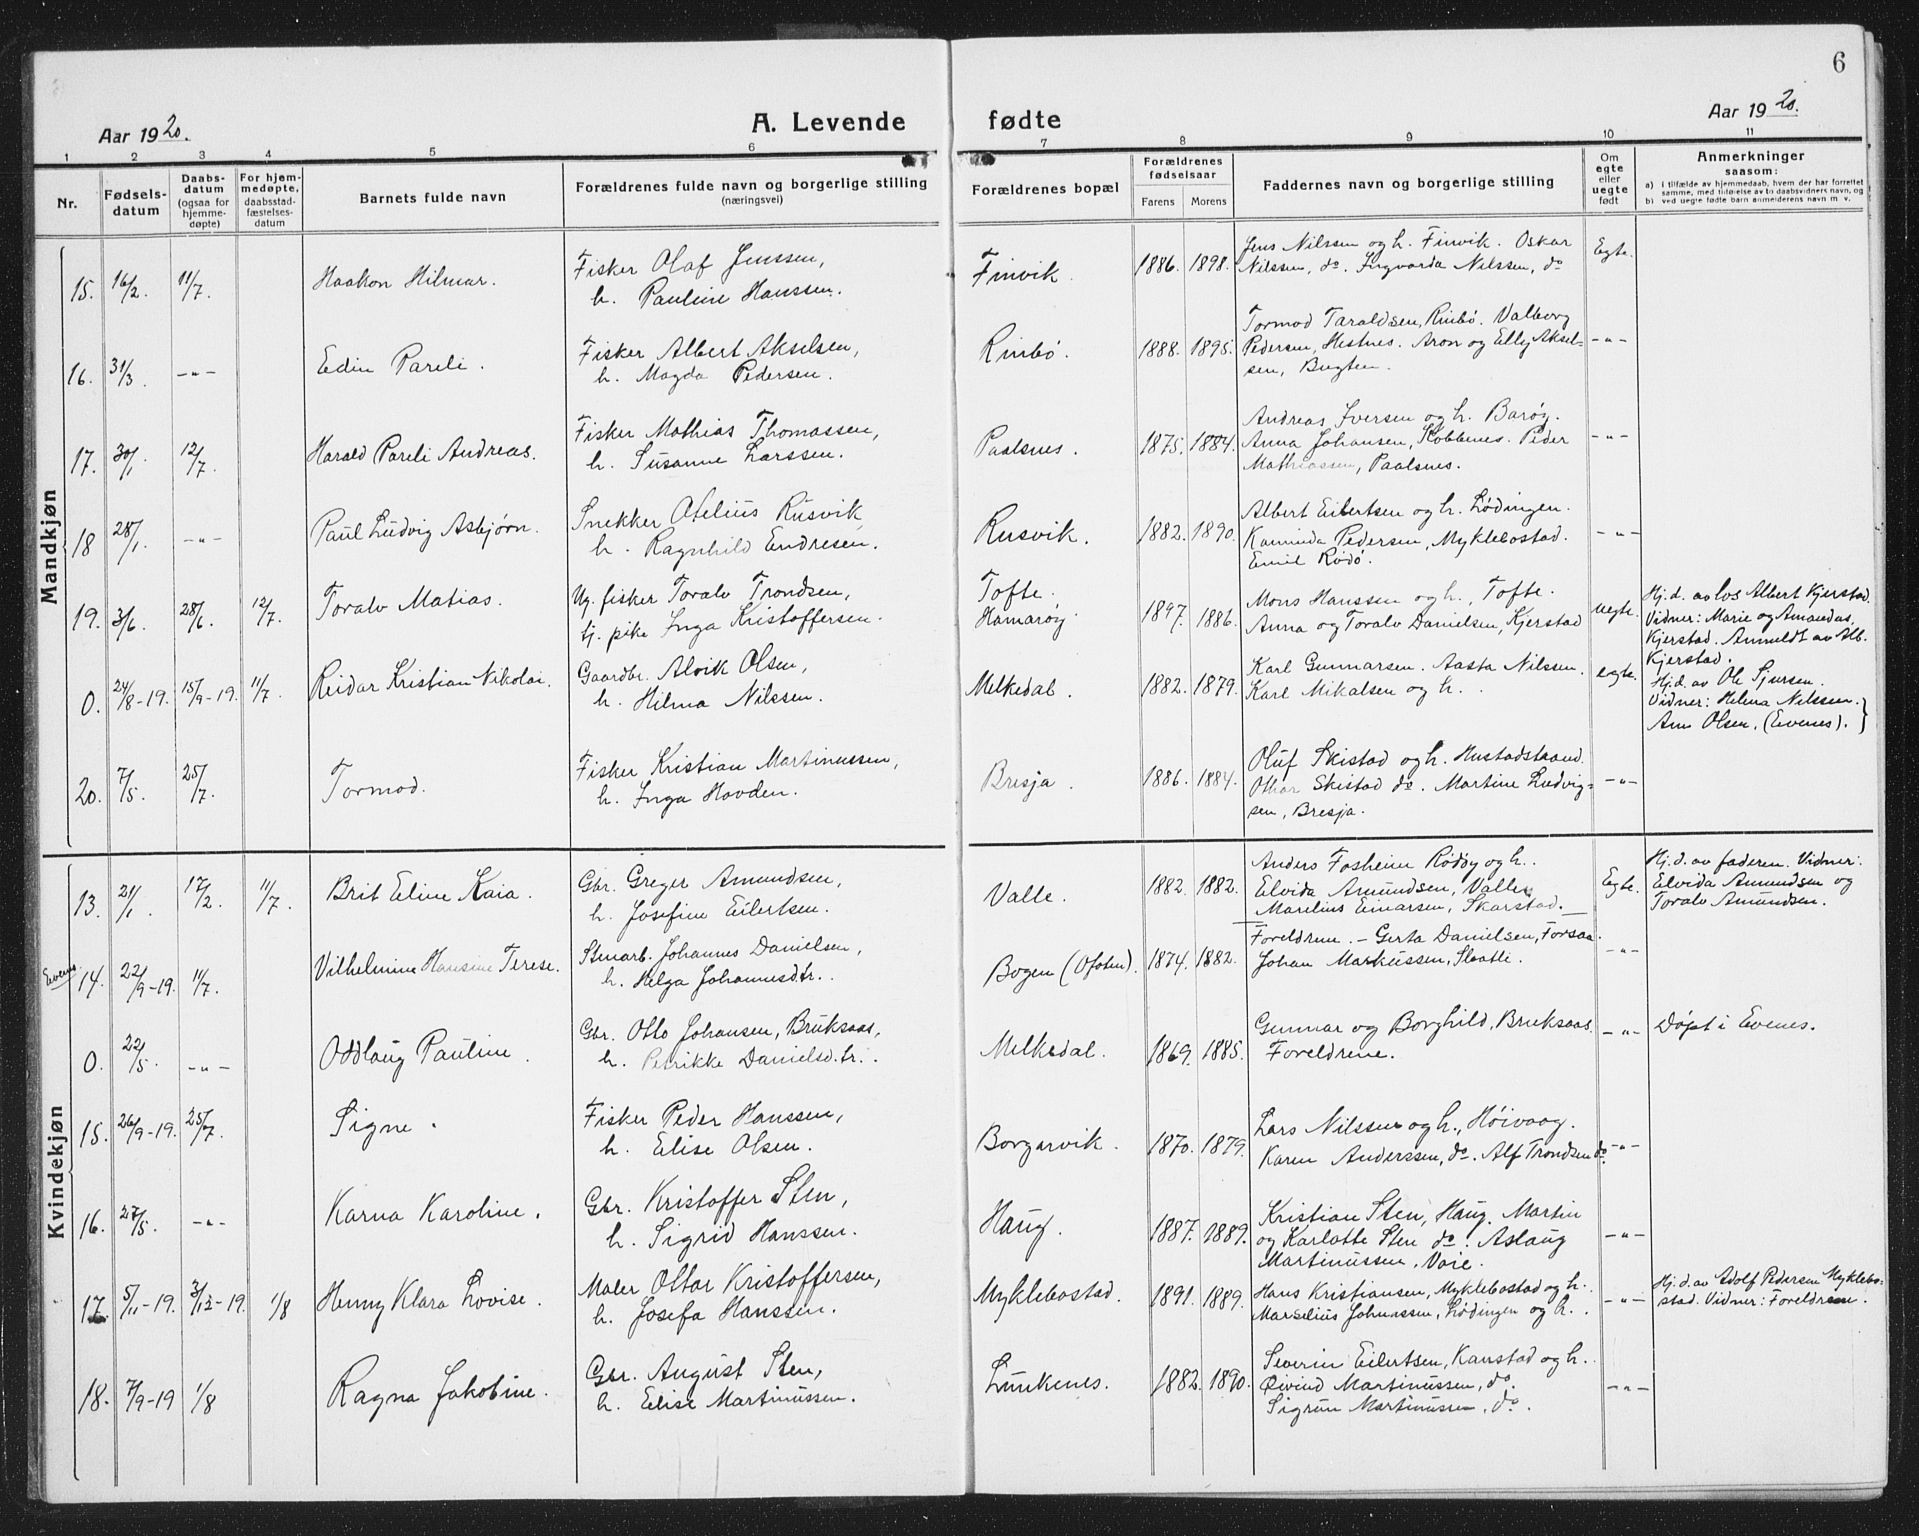 6
Aar 1920.
A. Levende
fødte
Aar 1920.
1 2 3 4 5 6 7 8 9 10 11
Nr.
Fødsels-
datum
Daabs-
datum
(ogsaa for
hjemme-
døpte)
For hjem-
medøpte,
daabsstad-
fæstelses-
datum
Barnets fulde navn
Forældrenes fulde navn og borgerlige stilling
(næringsvei)
Forældrenes bopæl
Forældrenes
fødselsaar
Farens
Morens
Faddernes navn og borgerlige stilling
Om
egte
eller
uegte
født
Anmerkninger
saasom:
a) i tilfælde av hjemmedaab, hvem der har forrettet
samme, med tilføielse av to daabsvidners navn, og
b) ved uegte fødte barn anmelderens navn m. v.
Mandkjøn
15. 16/2. 11/7. Haakon Hilmar.
Fisker Olaf Jenssen,
h. Pauline Hanssen.
Finvik. 1886. 1898.
Jens Nilssen og h. Finvik. Oskar
Nilssen, do. Ingvarda Nilssen, do
Egte.
16. 31/3. -"- Edin Pareli.
Fisker Albert Akselsen,
h. Magda Pedersen.
Rinbø. 1888. 1895.
Tormod Taraldsen, Rinbø. Valborg
Pedersen, Hestnes. Aron og Elly Aksel-
sen, Bugten.
-"-
17. 30/1. 12/7. Harald Pareli Andreas.
Fisker Mathias Thomassen,
h. Susanne Larssen.
Paalsnes. 1875. 1884.
Andreas Iversen og h. Barøy.
Anna Johansen, Kobbenes. Peder
Mathiassen, Paalsnes.
-"-
18 28/1. -"- Paul Ludvig Asbjørn.
Snekker Otelius Rusvik
h. Ragnhild Endresen.
Rusvik. 1882. 1890.
Albert Eilertsen og h. Lødingen.
Pedersen, Myklebostad.
Emil Rødø.
-"-
19. 3/6. 28/6. 12/7. Toralv Matias.
Ug. fisker Toralv Trondsen,
tj. pike Inga Kristoffersen.
Tofte.
Hamarøy 1897. 1886.
Mons Hanssen og h., Tofte.
Anna og Toralv Danielsen, Kjerstad
uegte.
Hj.d. av los Albert Kjerstad.
Vidner: Marie og Amandus
Kjerstad. Anmeldt av Alb.
Kjerstad.
0. 24/8-19. 15/9-19. 11/7. Reidar Kristian Nikolai.
Gaardbr. Alvik Olsen,
h. Hilma Nilssen.
Melkedal. 1882. 1879.
Karl Gunnarsen. Aasta Nilssen.
Karl Mikalsen og h.
egte.
Hj.d. av Ole Sjursen.
Vidner: Helena Nilssen.
Ane Olsen, (Evenes).
20. 7/5. 25/7. Tormod.
Fisker Kristian Martinussen,
h. Inga Hovden.
Bresja. 1886. 1884.
Oluf Skistad og h. Hustadstrand.
Othar Skistad do. Martine Ludvig-
sen, Bresja.
-"-
Kvindekjøn
13. 21/1. 17/2. 11/7. Brit Eline Kaia.
Gbr. Greger Amundsen,
h. Josefine Eilertsen.
Valle. 1882. 1882.
Anders Fosheim Rødøy og h.
Elvida Amundsen, Valle,
Marelius Einarsen, Skarstad.
Egte.
Hj.d. av faderen. Vidner:
Elvida Amundsen og
Toralv Amundsen.
Evenes
14. 22/9-19. 11/7. Vilhelmine Hansine Terese.
Stenarb. Johannes Danielsen,
h. Helga Johannesdtr.
Bogen (Ofoten). 1874. 1882.
Foreldrene. - Gerta Danielsen, Forsaa.
Johan Markussen, Slaatli.
-"-
0. 22/5. -"- Oddlaug Pauline.
Gbr. Otto Johansen, Bruksaas,
h. Petrikke Danielsd.tr.
Melkedal. 1869. 1885.
Gunnar og Borghild Bruksaas.
Foreldrene.
-"- Døpt i Evenes.
15. 26/9-19. 25/7. Signe.
Fisker Peder Hanssen,
h. Elise Olsen.
Borgarvik. 1870. 1879.
Lars Nilssen og h., Høivaag.
Karen Anderssen, do. Alf Trondsen do.
-"-
16. 27/5. -"- Karna Karoline.
Gbr. Kristoffer Sten,
h. Sigrid Hanssen.
Haug. 1887. 1889.
Kristian Sten, Haug. Martin
og Karlotte Sten do. Aslaug
Martinussen, Voie.
-"-
17. 5/11-19. 3/12-19. 1/8 Henny Klara Lovise.
Maler Ottar Kristoffersen,
h. Josefa Hanssen.
Myklebostad. 1891. 1889.
Hans Kristiansen, Myklebostad og h.
Marselius Johanssen, Lødingen og h.
-"-
Hj.d. av Adolf Pedersen Myklebo-
stad. Vidner: Foreldrene.
18. 7/9-19 1/8 Ragna Jakobine.
Gbr. August Sten,
h. Elise Martinussen.
Lunkenes. 1882. 1890.
Severin Eilertsen, Kanstad og h.
Øivind Martinussen, do.
Sigrun Martinussen, do.
-"-